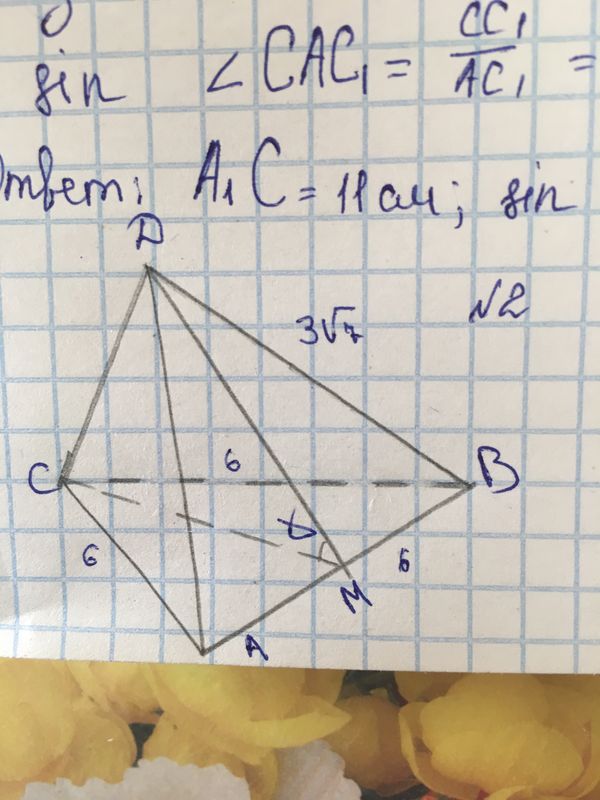 sin ∠CAC₁ = CC₁/AC₁ =
Ответ: A₁C = 11 см; sin
D
3√7 №2
C 6 B
6 6
M
A